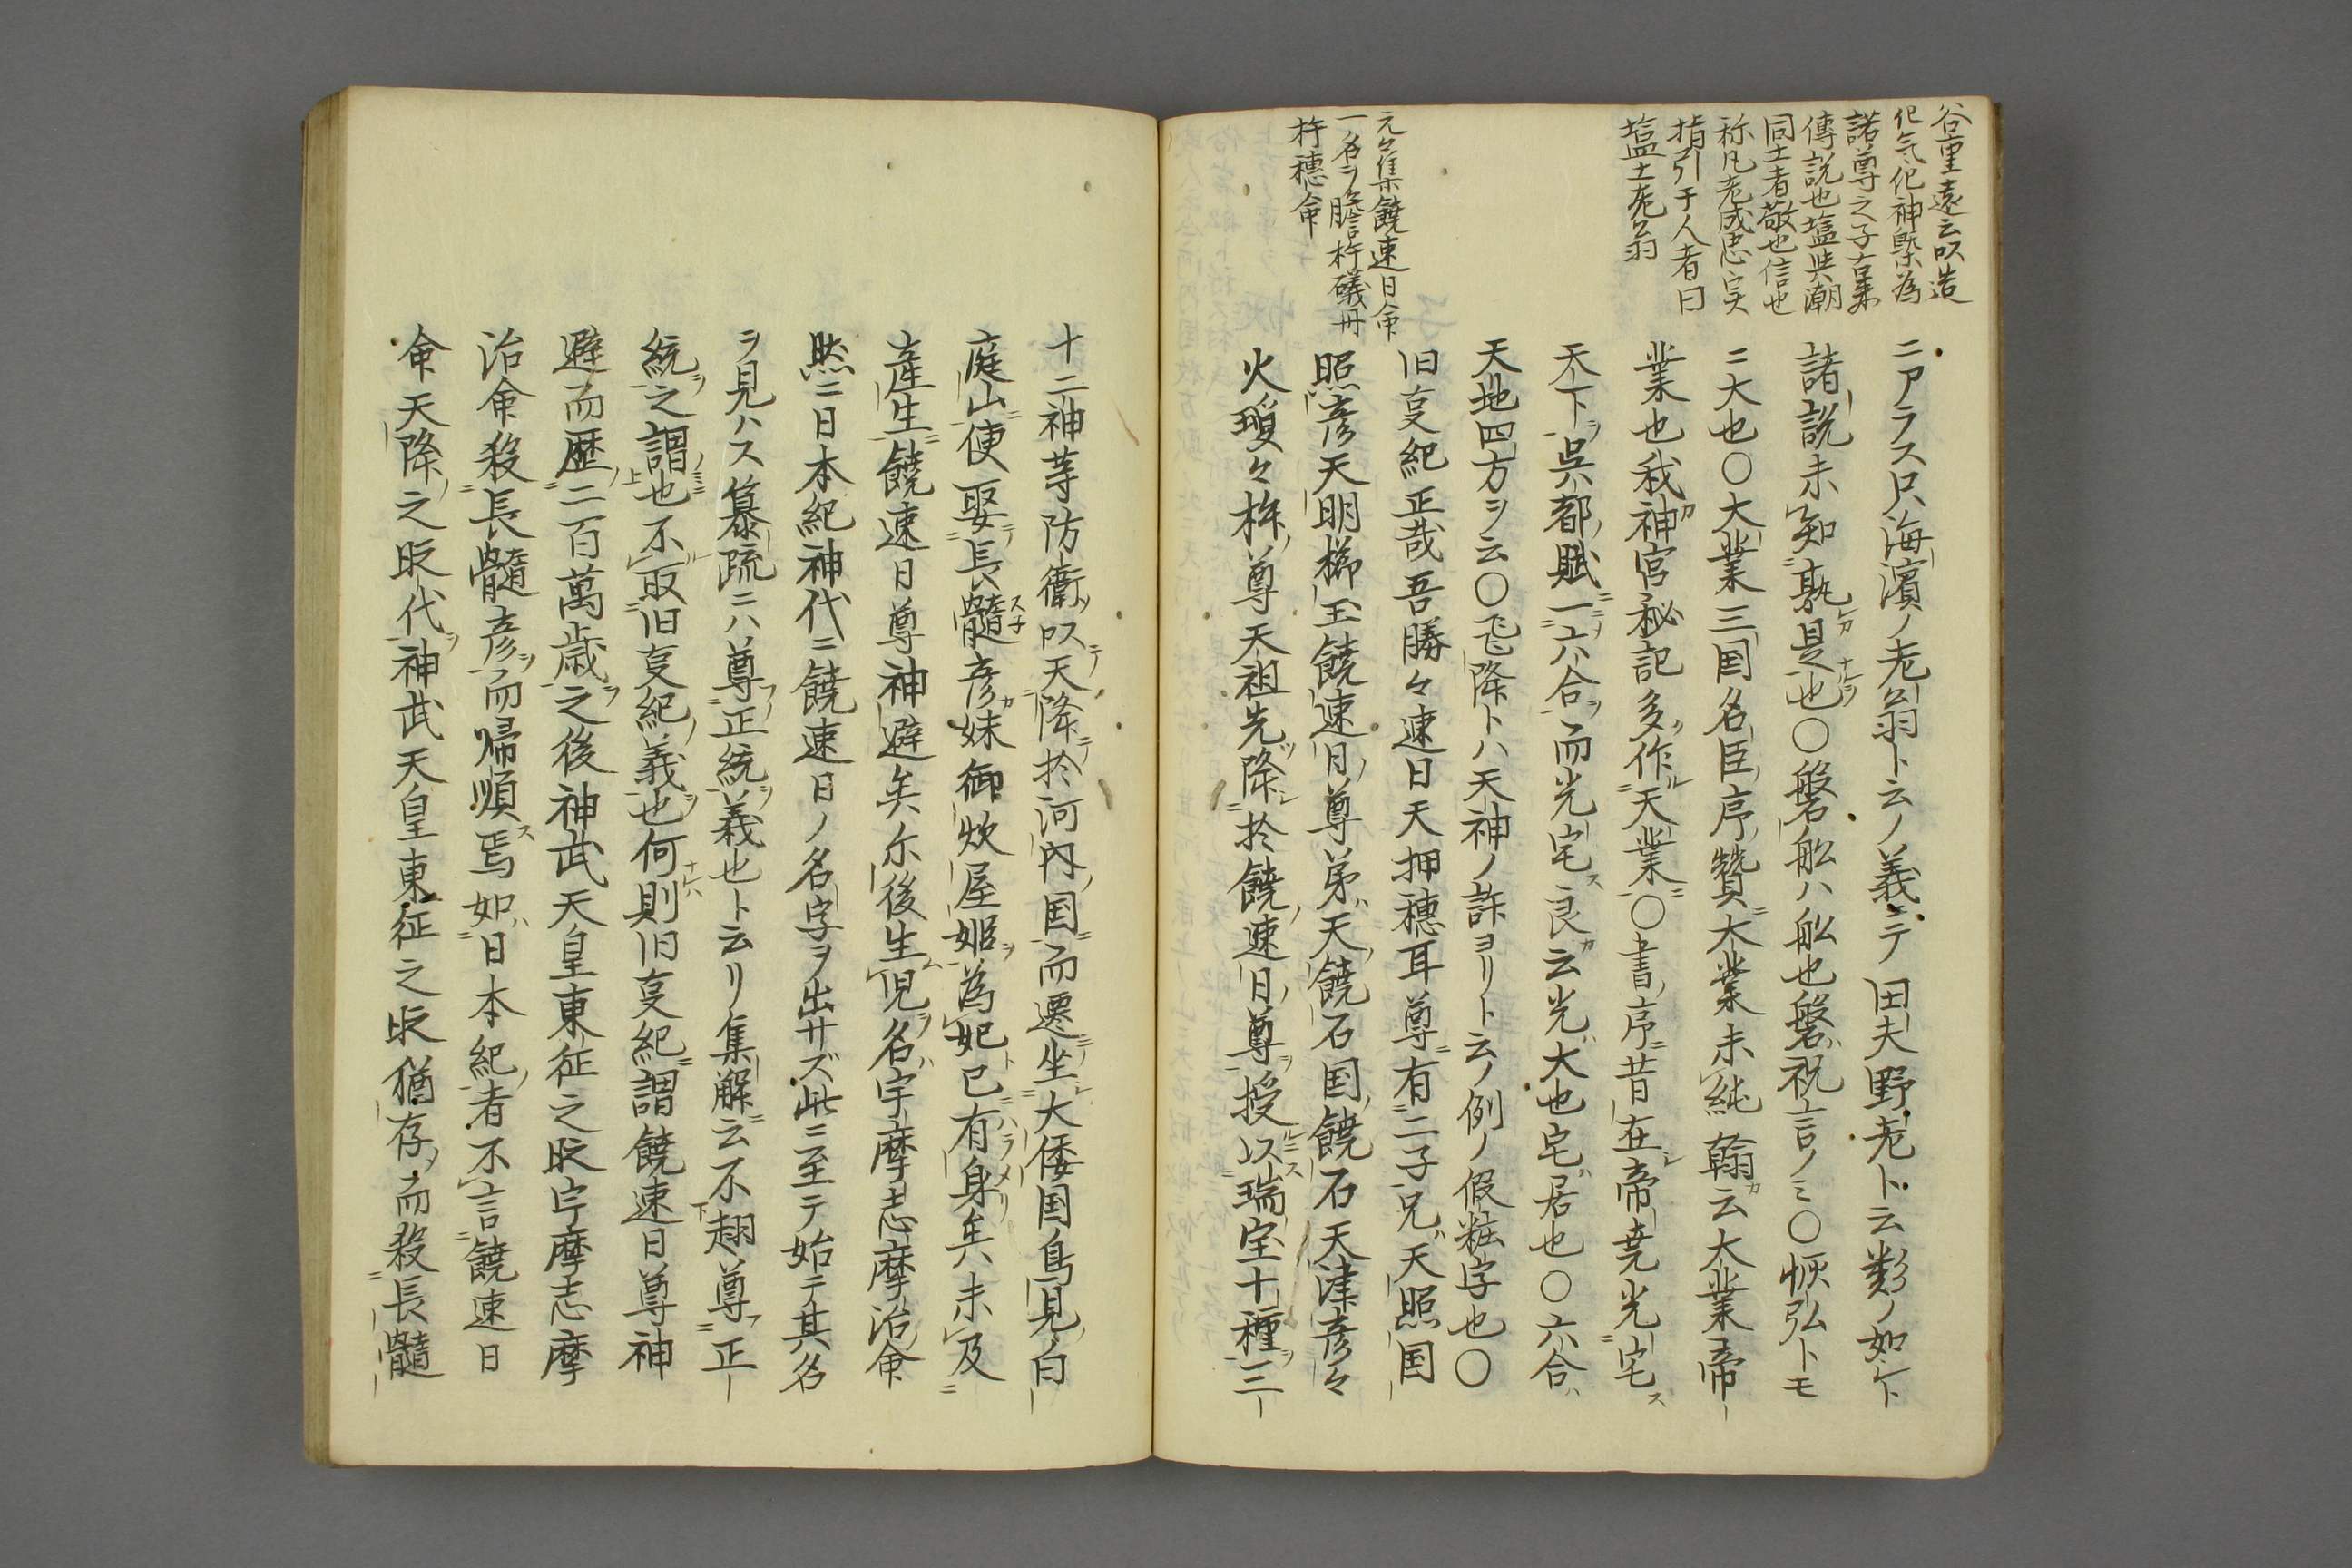 谷重遠云以造
化気化神槩為
諾尊之子古来
傳説也塩與潮
同土者敬也信也
称凡老成忠実
指引于人者曰
塩土老翁
ニアラス只海濱ノ老翁ト云ノ義ニテ田夫野老ト云類ノ如シト
諸説未知孰是也〇磐船ハ舩也磐祝言ノミ〇恢弘トモ
ニ大也〇大業三国名臣序賛大業未純翰云大業帝
業也我神宮秘記多作天業〇書序昔在帝尭光宅
天下呉都賦一六合而光宅良云光大也宅居也〇六合ハ
天地四方ヲ云〇飛降トハ天神ノ許ヨリト云ノ例ノ假粧字也〇
元々集饒速日命
一名ヲ膽杵磯丹
杵穗命
旧叓紀正哉吾勝々速日天押穂耳尊有二子兄天照国
照彦天明櫛玉饒速日尊弟天饒石国饒石天津彦々
火瓊々杵尊天祖先降於饒速日尊授以瑞宝十種三
十二神䓁防衛以天降於河内国而遷坐大倭国鳥見白
庭山使娶長髄彦妹御炊屋姫為妃已有身矣未及
産生饒速日尊神避矣尓後生児名宇摩志摩治命
然ニ日本紀神代ニ饒速日ノ名字ヲ出サズ此ニ至テ始テ其名
ヲ見ハス纂疏ニハ尊正統義也ト云リ集解云不翅尊正
統之謂也不取旧叓紀義也何則旧叓紀謂饒速日尊神
避而歴二百萬歳之後神武天皇東征之時宇摩志摩
治命殺長髄彦而帰順焉如日本紀者不言饒速日
命天降之時代神武天皇東征之時猶存而殺長髄